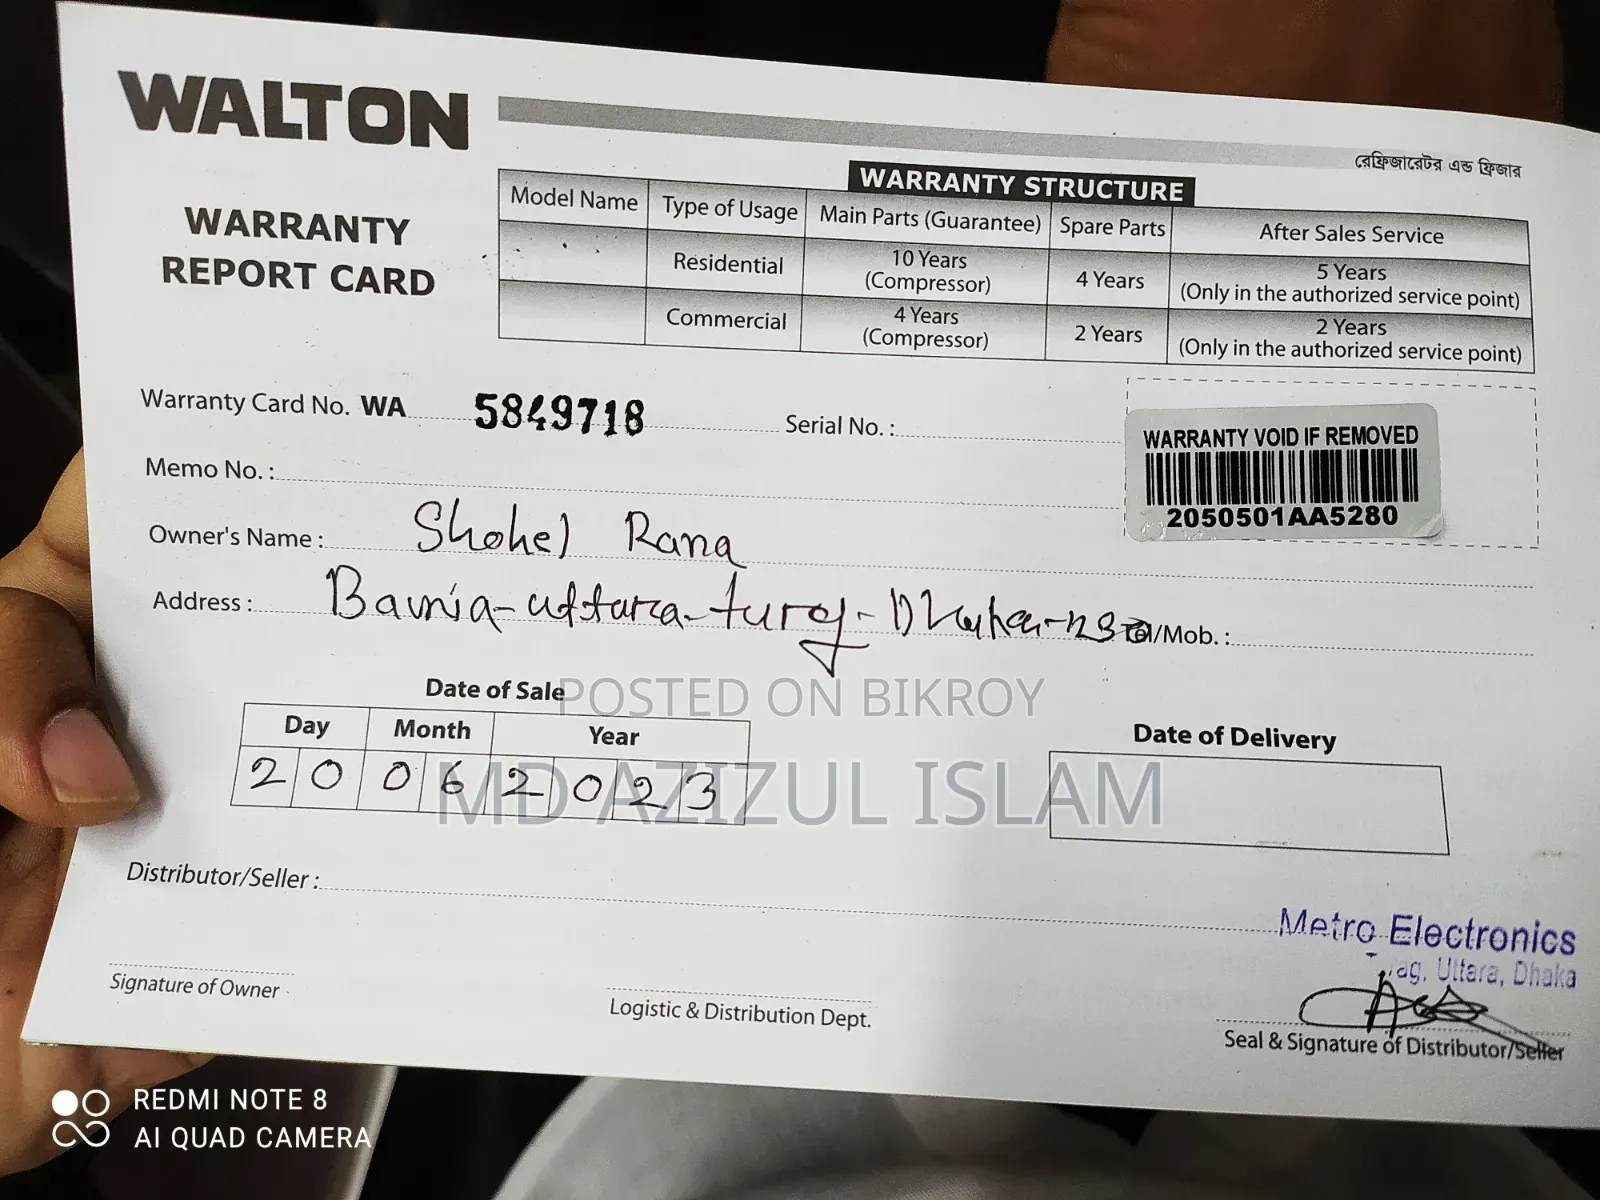 WALTON
রেফ্রিজারেটর এন্ড ফ্রিজার
WARRANTY REPORT CARD
WARRANTY STRUCTURE
Model Name Type of Usage Main Parts (Guarantee) Spare Parts After Sales Service
Residential 10 Years (Compressor) 4 Years 5 Years (Only in the authorized service point)
Commercial 4 Years (Compressor) 2 Years 2 Years (Only in the authorized service point)
Warranty Card No. WA 5849718 Serial No. :
WARRANTY VOID IF REMOVED
2050501AA5280
Memo No. :
Owner's Name : Shohel Rana
Address : Baunia-uttara-turag-Dhaka- /Mob. :
POSTED ON BIKROY
MD AZIZUL ISLAM
Date of Sale
Day Month Year
20 06 2023
Date of Delivery
Distributor/Seller :
Metro Electronics
Uttara, Dhaka
Signature of Owner
Logistic & Distribution Dept.
Seal & Signature of Distributor/Seller
REDMI NOTE 8
AI QUAD CAMERA